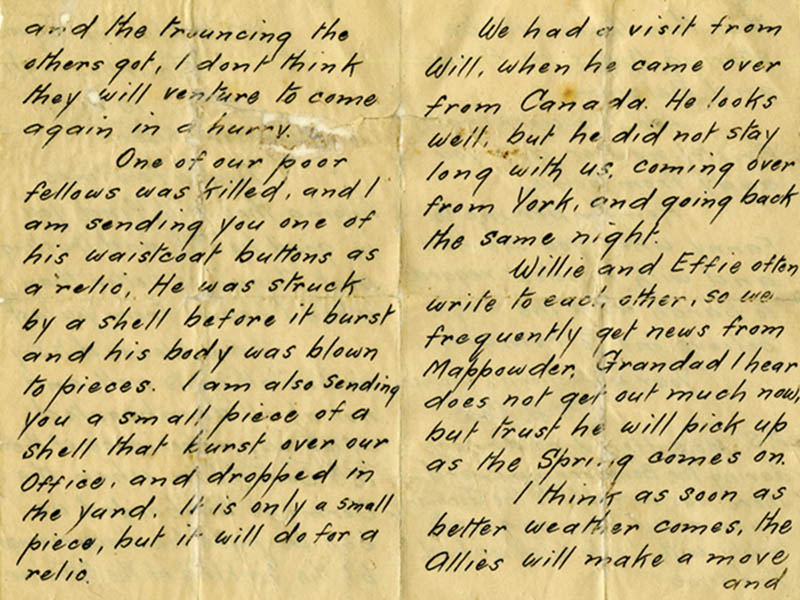 and the trouncing the
others got, I dont think
they will venture to come
again in a hurry.
One of our poor
fellows was killed, and I
am sending you one of
his waistcoat buttons as
a relic. He was struck
by a shell before it burst
and his body was blown
to pieces. I am also sending
you a small piece of a
shell that burst over our
Office, and dropped in
the yard. It is only a small
piece, but it will do for a
relic.
We had a visit from
Will, when he came over
from Canada. He looks
well, but he did not stay
long with us, coming over
from York, and going back
the same night.
Willie and Effie often
write to each other, so we
frequently get news from
Mappowder. Grandad I hear
does not get out much now,
but trust he will pick up
as the Spring comes on.
I think as soon as
better weather comes, the
Allies will make a move
and